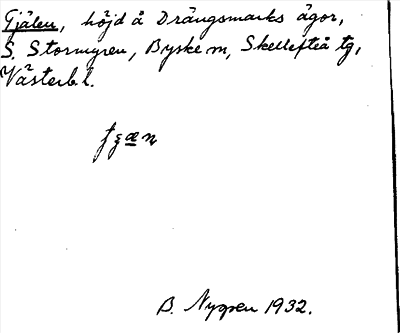 Tjälen, höjd å Drängsmarks ägor,
S. Stormyren, Byske sn, Skellefteå tg,
Västerb.l.
B. Nygren 1932.